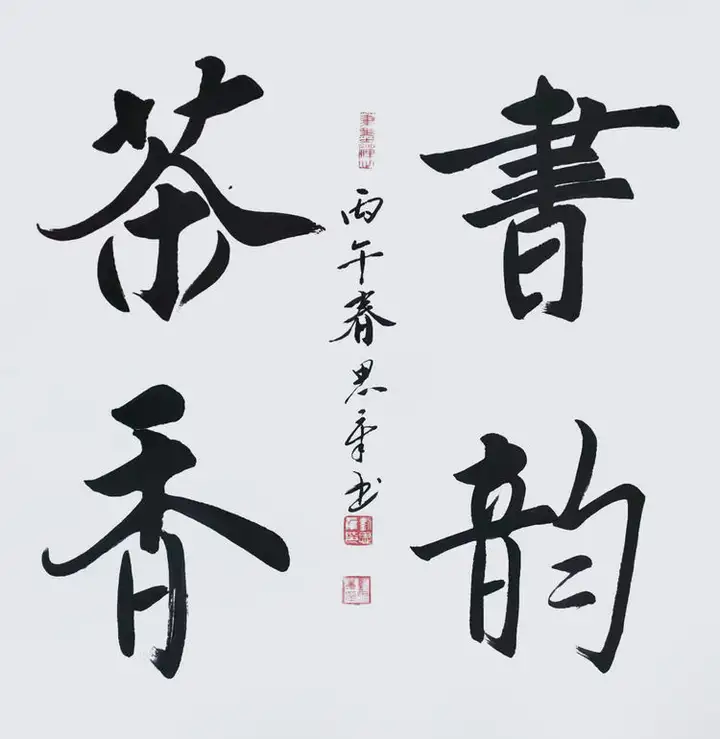 書韵
丙午春思章书
茶香